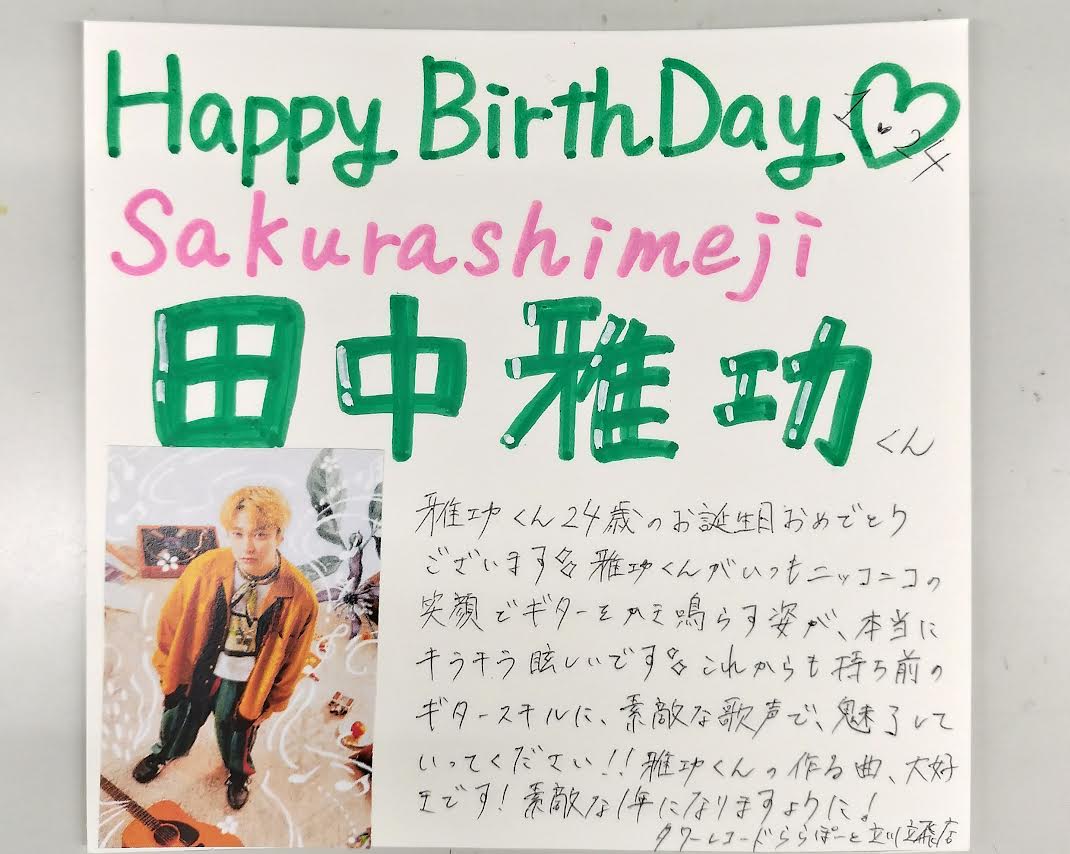 Happy BirthDay♡
1.24
Sakurashimeji
田中雅功
くん
雅功くん24歳のお誕生日おめでとう
ございます 雅功くんがいつもニッコニコの
笑顔でギターをかき鳴らす姿が、本当に
キラキラ眩しいです これからも持ち前の
ギタースキルに、素敵な歌声で、魅了して
いってください!! 雅功くんの作る曲、大好
きです! 素敵な1年になりますように!
タワーレコードららぽーと立川立飛店